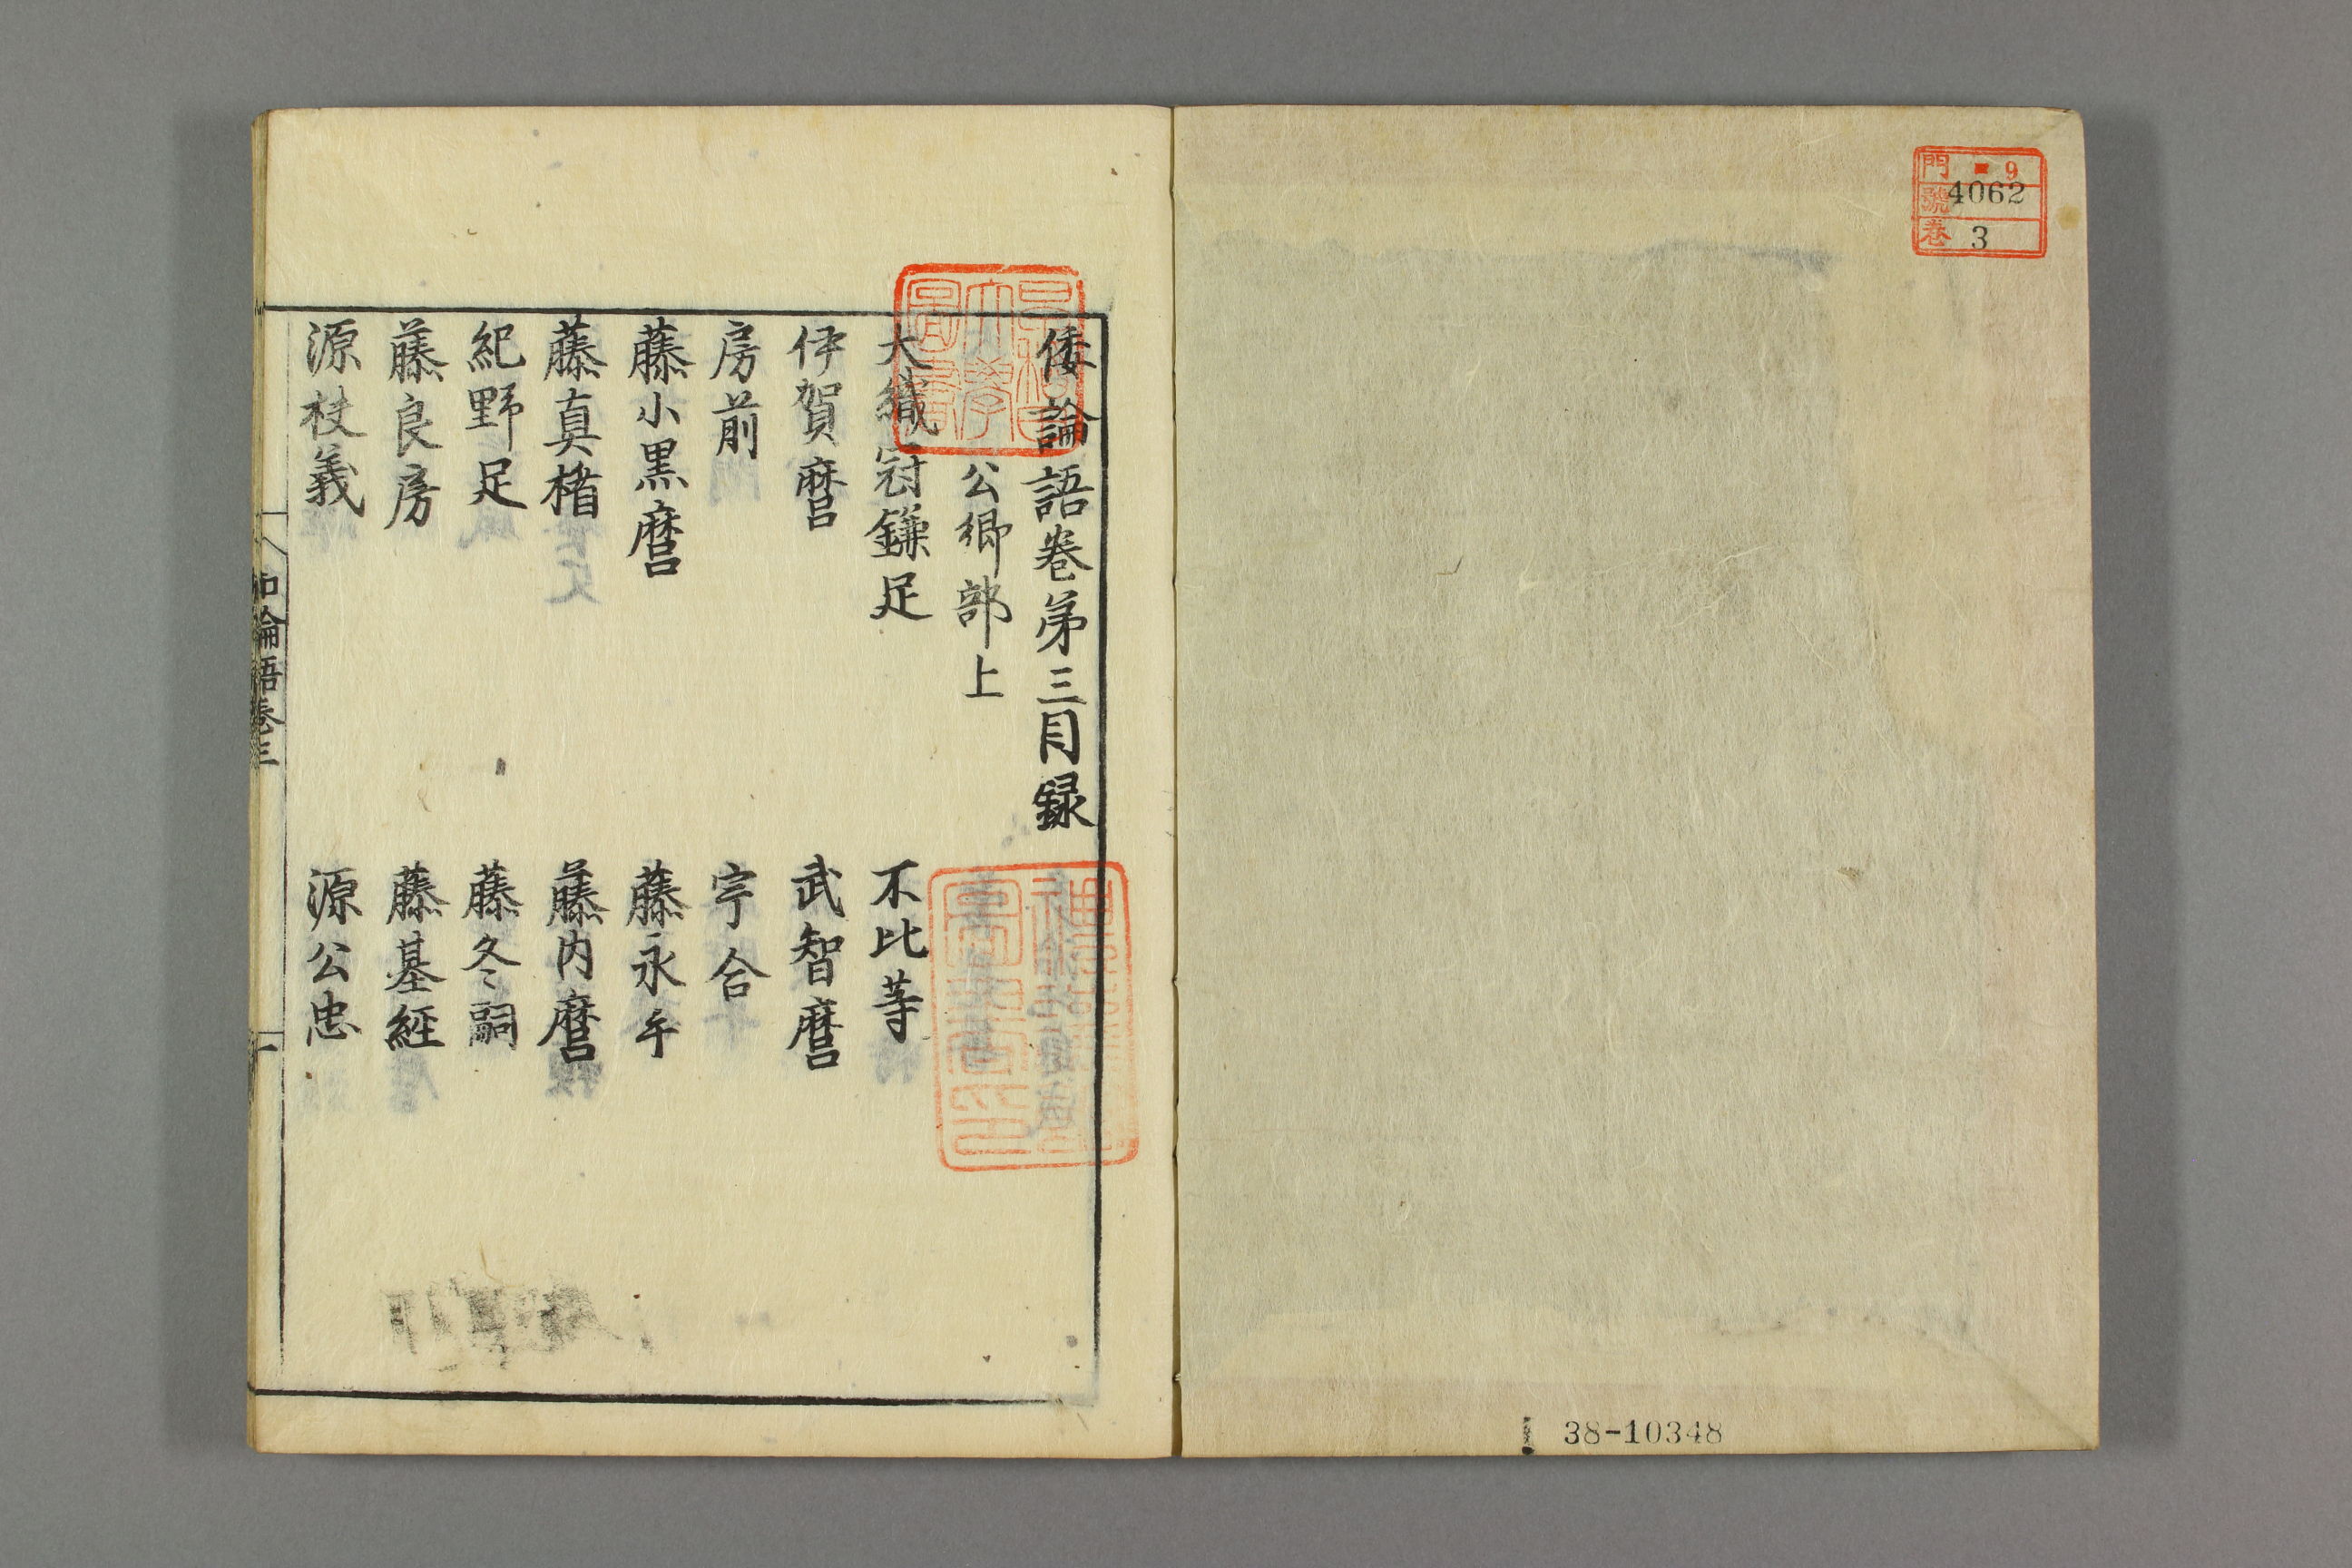 門 9
號 4062
巻 3
38-10348
倭論語巻第三目録
公卿部上
大織冠鎌足
不比等
伊賀麿
武智麿
房前
宇合
藤小黒麿
藤永手
藤真楯
藤内麿
紀野足
藤冬嗣
藤良房
藤基経
源枝義
源公忠
和論語巻三
一